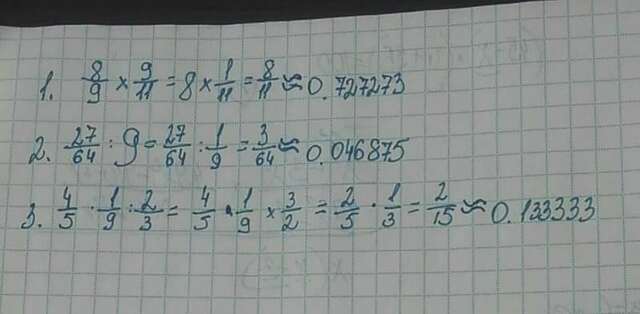 1. 8/9 × 9/11 = 8 × 1/11 = 8/11 ≈ 0.727273
2. 27/64 : 9 = 27/64 : 1/9 = 3/64 ≈ 0.046875
3. 4/5 · 1/9 : 2/3 = 4/5 · 1/9 × 3/2 = 2/5 · 1/3 = 2/15 ≈ 0.133333